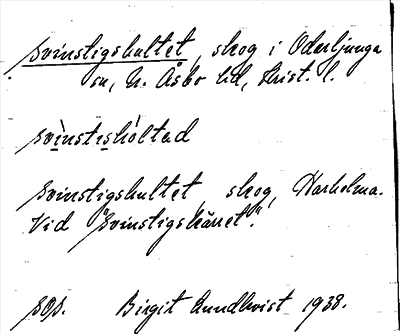 Svinstigshultet, skog i Oderljunga
sn, N. Åsbo hd, Krist. l.
svinstishòltəd
Svinstigshultet, skog, Harholma.
Vid "Svinstigskärret".
sOp. Birgit Lundkvist 1938.